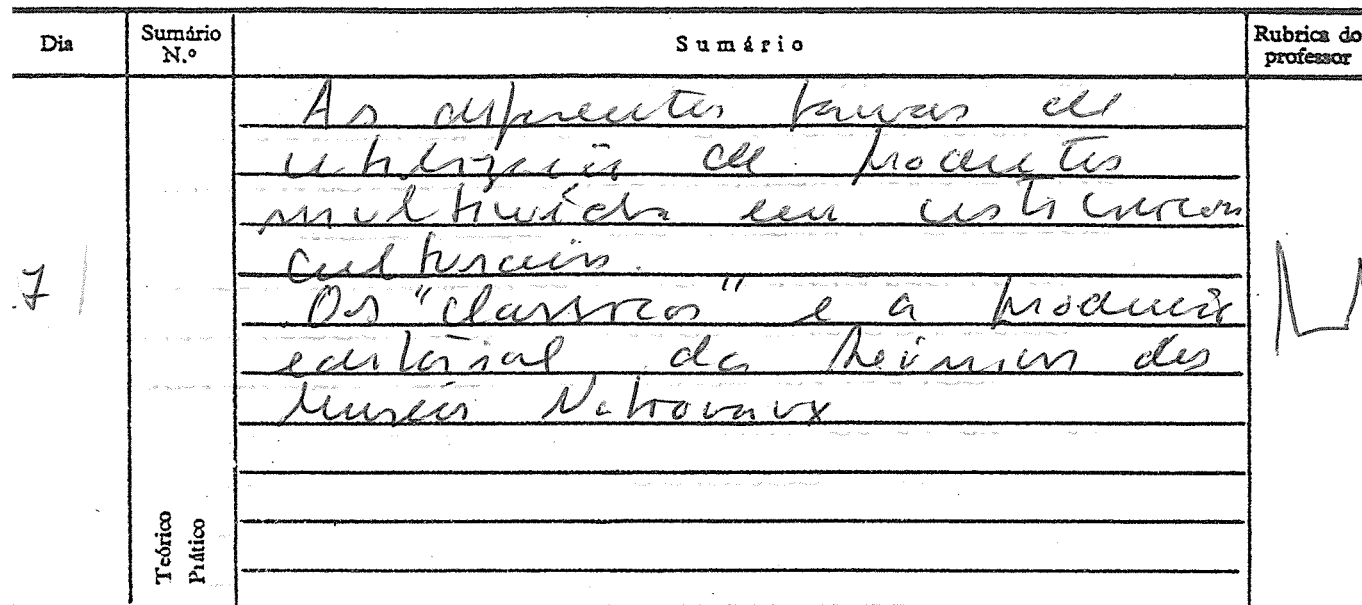 Dia
Sumário N.º
Sumário
Rubrica do professor
As diferentes formas de
utilização de produtos
multimédia em instituições
culturais.
Os "classicos" e a produção
editorial da Réunion des
Musées Nationaux
7
Teórico
Prático